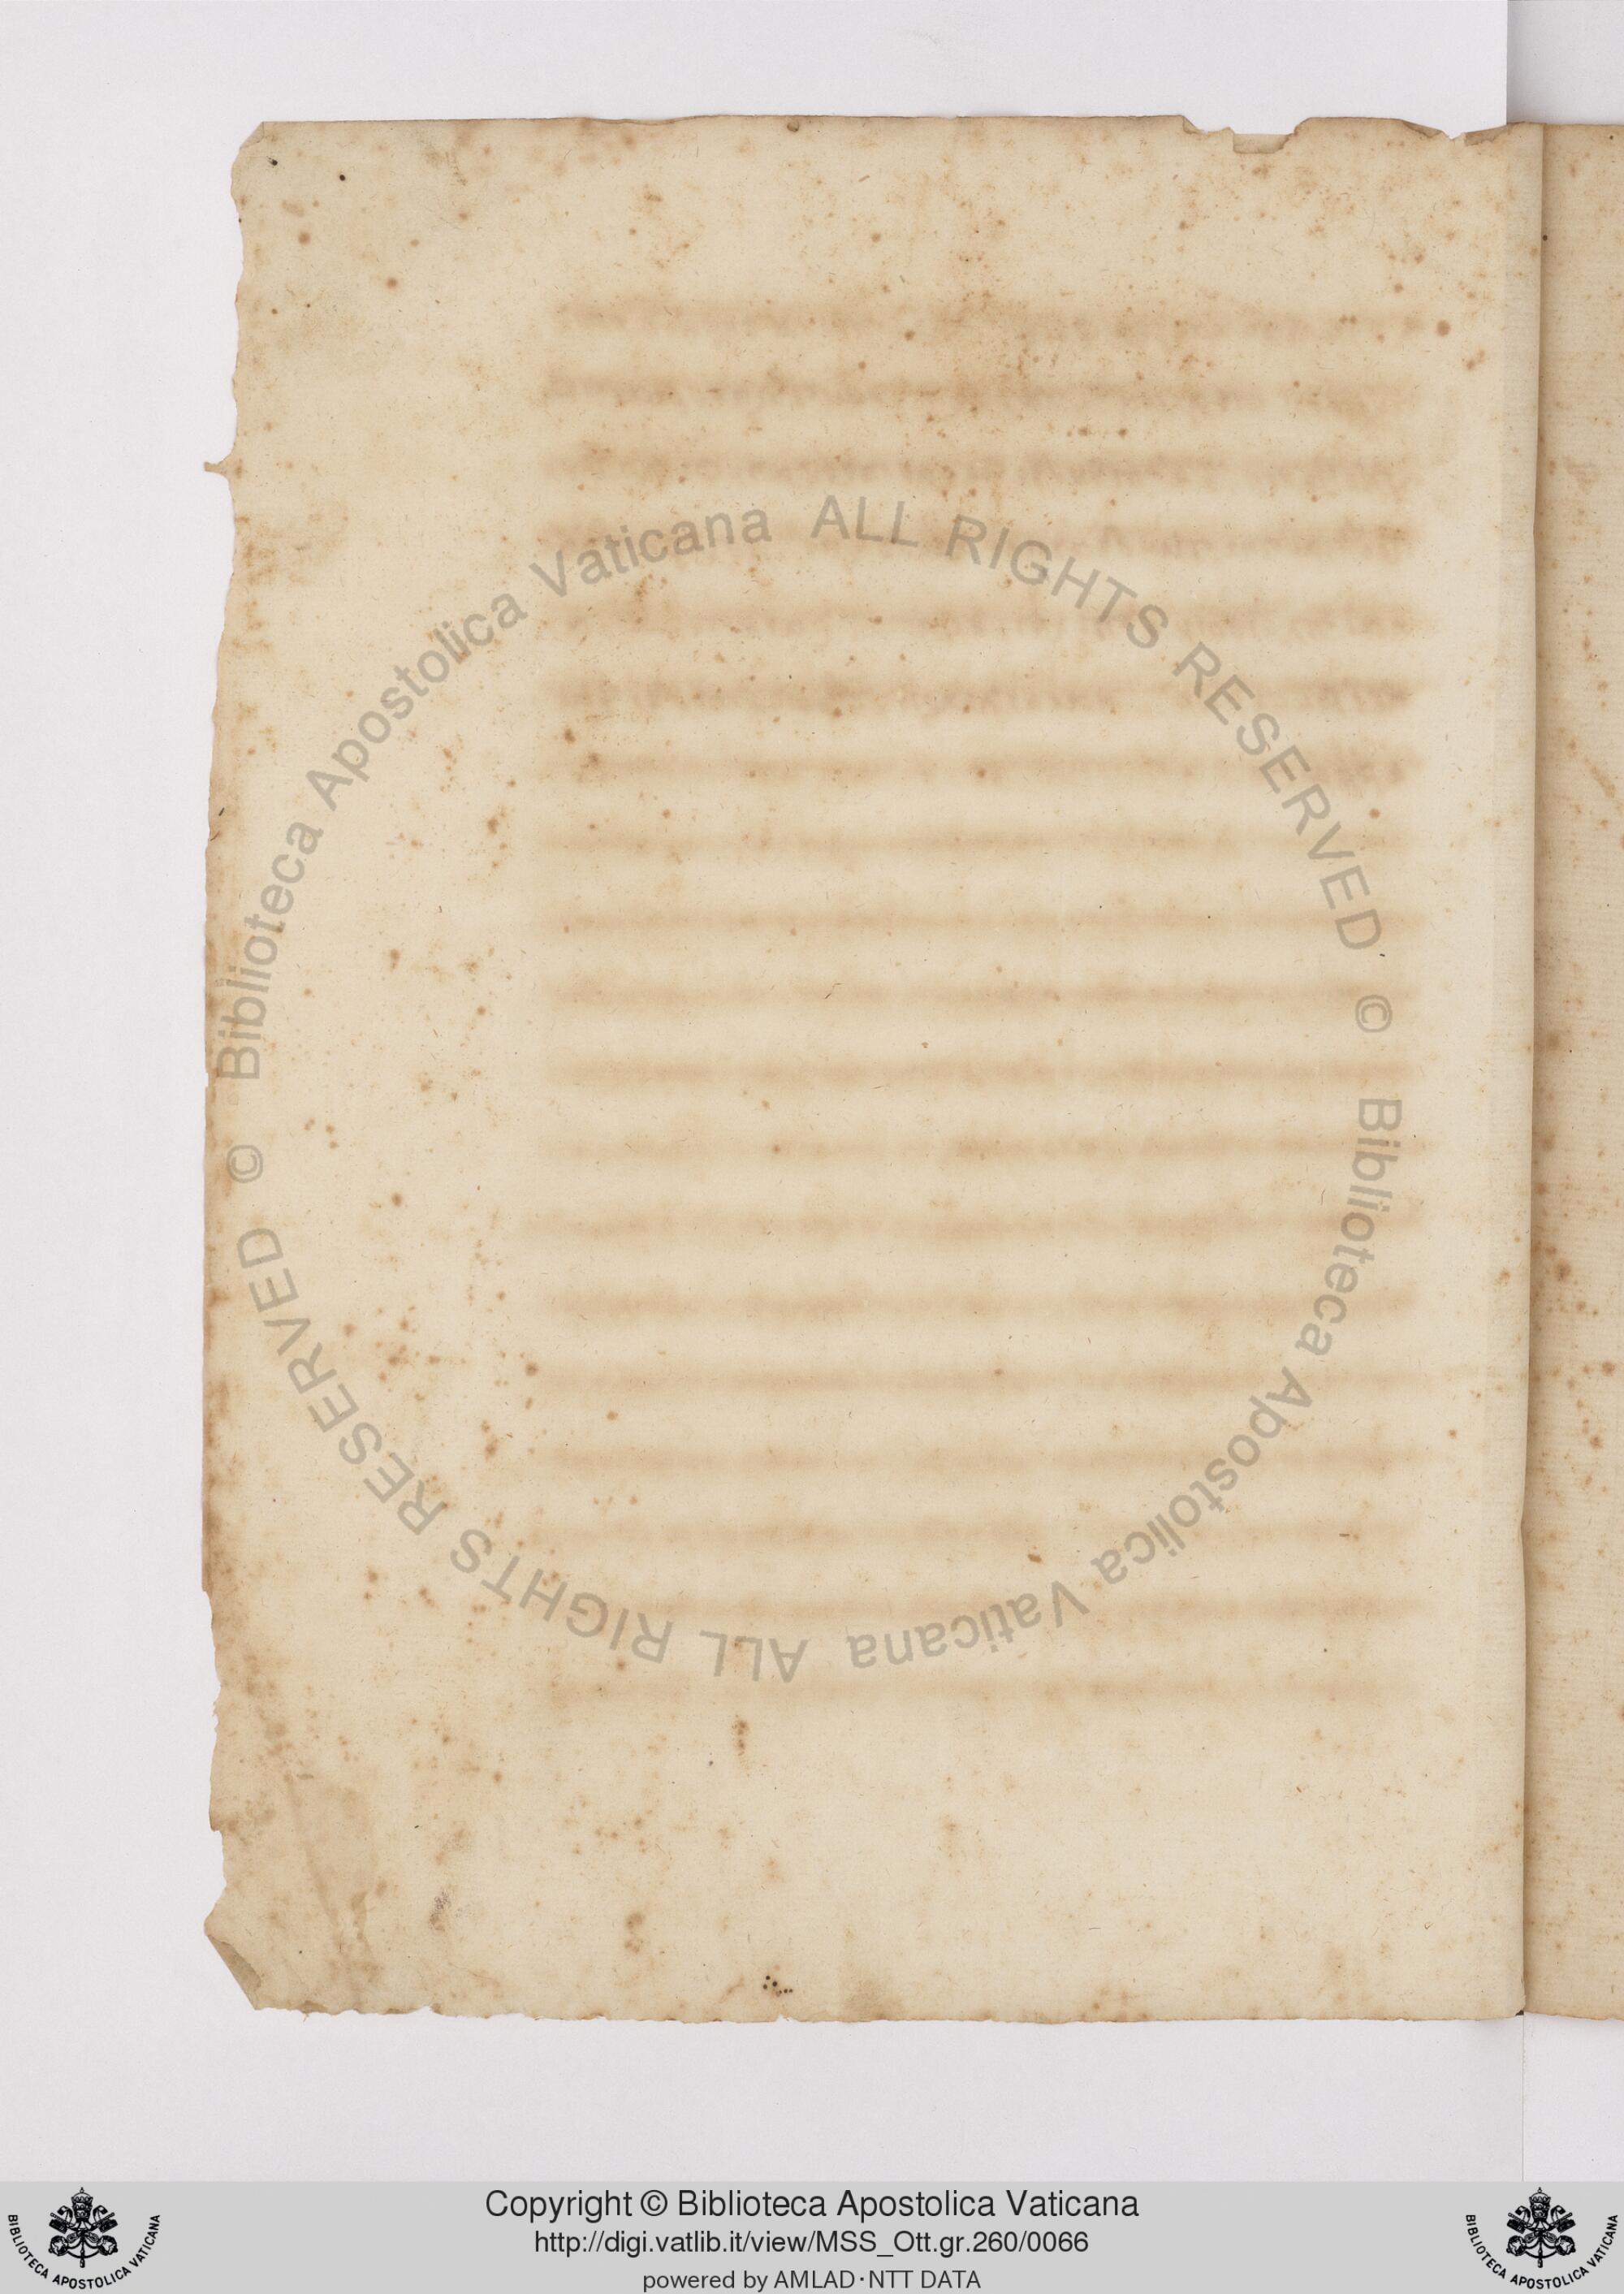 © Biblioteca Apostolica Vaticana ALL RIGHTS RESERVED
© Biblioteca Apostolica Vaticana ALL RIGHTS RESERVED
Copyright © Biblioteca Apostolica Vaticana
http://digi.vatlib.it/view/MSS_Ott.gr.260/0066
powered by AMLAD·NTT DATA
BIBLIOTECA APOSTOLICA VATICANA
BIBLIOTECA APOSTOLICA VATICANA